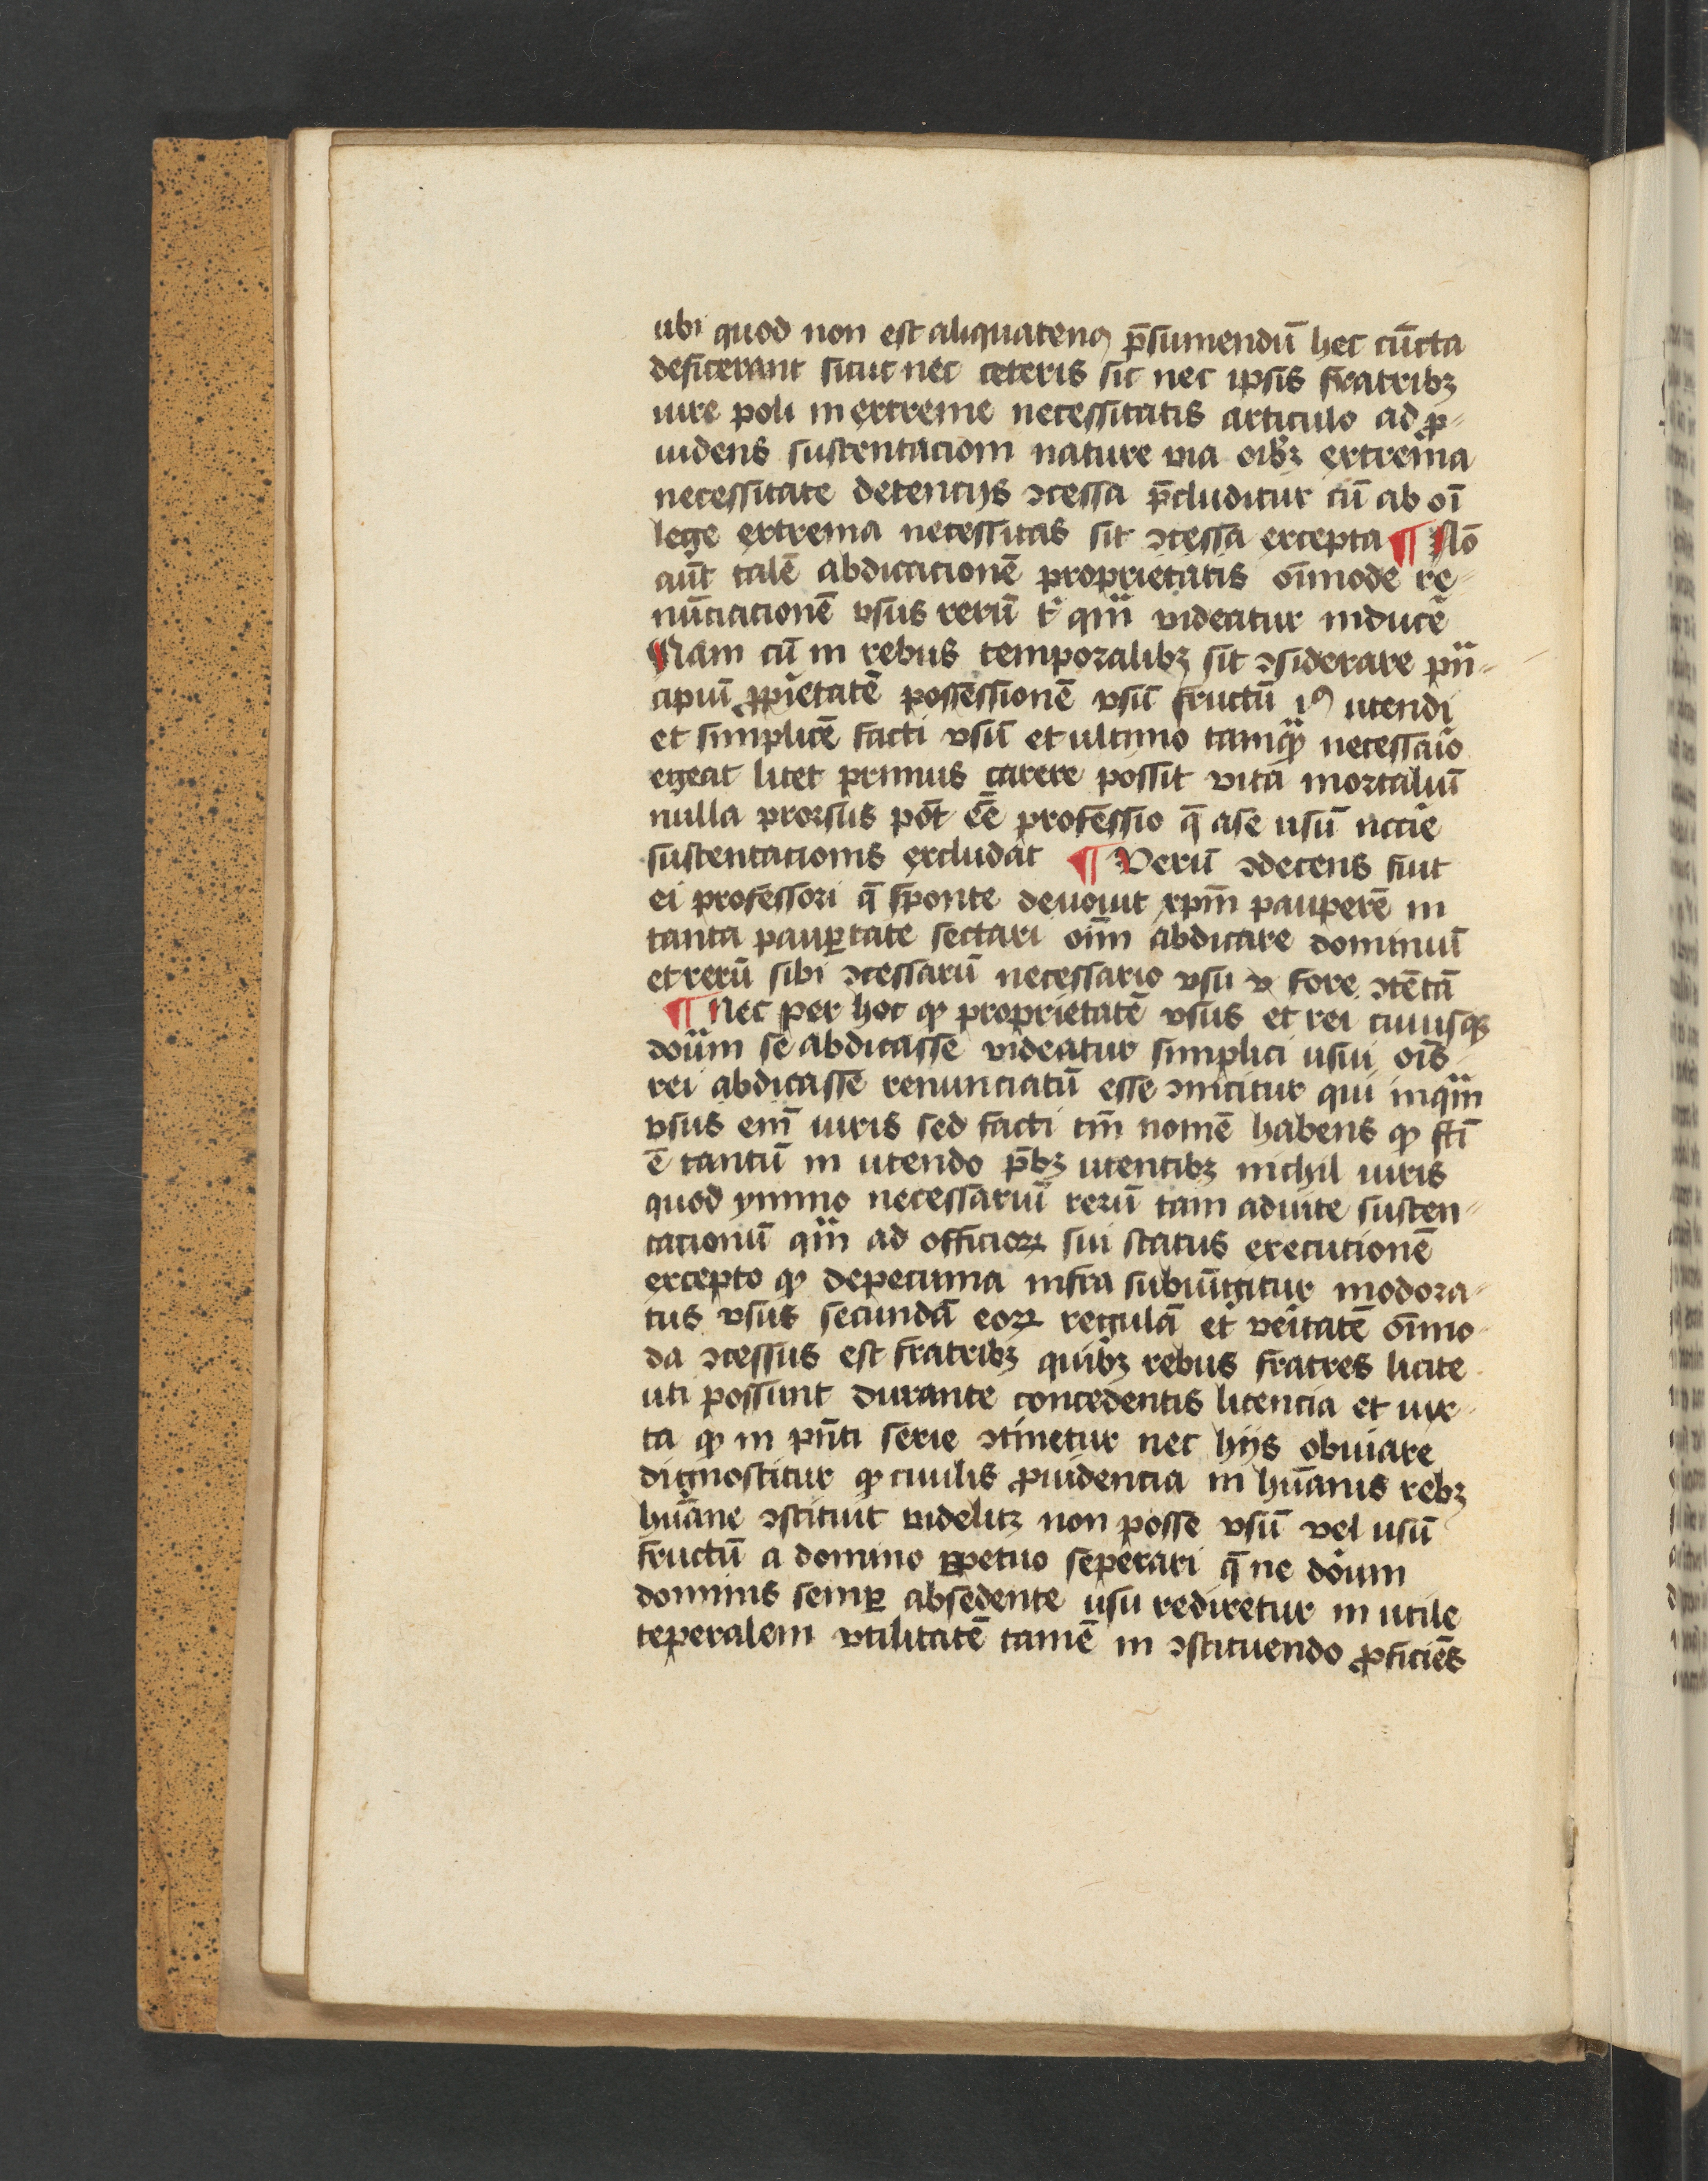 ubi quod non est aliquatenꝰ p̄sumendū hec cūcta
deficerant sicut nec ceteris sic nec ipsis fratribꝫ
iure poli in extreme necessitatis articulo ad ꝓ-
uidens sustentaciom nature via oībꝫ extrema
necessitate detentijs ↄcessa p̄cluditur cū ab oī
lege extrema necessitas sit ↄcessa excepta ¶ Nō
aūt talē abdicacionē proprietatis oīmode re-
nūciacionē vsus rerū qm̄ videatur inducē
Nam cū in rebus temporalibꝫ sit ↄsiderare pn̄-
cipuū ꝓpietatē possessionē vsū fructū iꝰ utendi
et simplicē facti vsū et ultimo tamqꝫ necessaīo
egeat licet primus carere possit vita mortaliū
nulla prorsus pōt eē professio q̄ a se usū nccīe
sustentacionis excludat ¶ Verū ↄdecens fuit
ei professori q̄ sponte deuouit xpm̄ pauperē in
tanta paup̱tate sectari oīm abdicare dominiū
et rerū sibi ↄcessarū necessario vsu v fore ↄtētā
¶ Nec per hoc ꝙ proprietatē vsus et rei cuiusqꝫ
doīum se abdicasse videatur simplici usui oīs
rei abdicasse renunciatū esse ↄuīcitur qui inqm̄
vsus em̄ iuris sed facti tm̄ nomē habens ꝙ fti
ē tantū in utendo p̄bꝫ utentibꝫ nichil iuris
quod ymmo necessariū rerū tam ad vite susten-
tacionū qm̄ ad officioꝝ sui status executionē
excepto ꝙ de pecunia infra subiūgitur modora-
tus vsus secundā eoꝝ regulā et ueītatē oīmo
da ↄcessus est fratribꝫ quibꝫ rebus fratres licite
uti possunt durante concedentis licencia et iux-
ta ꝙ in pn̄ti serie ↄtinetur nec hijs obuiare
dignoscitur ꝙ ciuilis ꝓuidencia in hūanis rebꝫ
hūane ↄstituit videlitꝫ non posse vsū vel usū
fructū a domino ꝑpetuo seperari q̄ ne doīum
dominis semꝑ absedente usu rediretur in utile
teperalem vtilitatē tamē in ↄstituendo ꝓficiēs